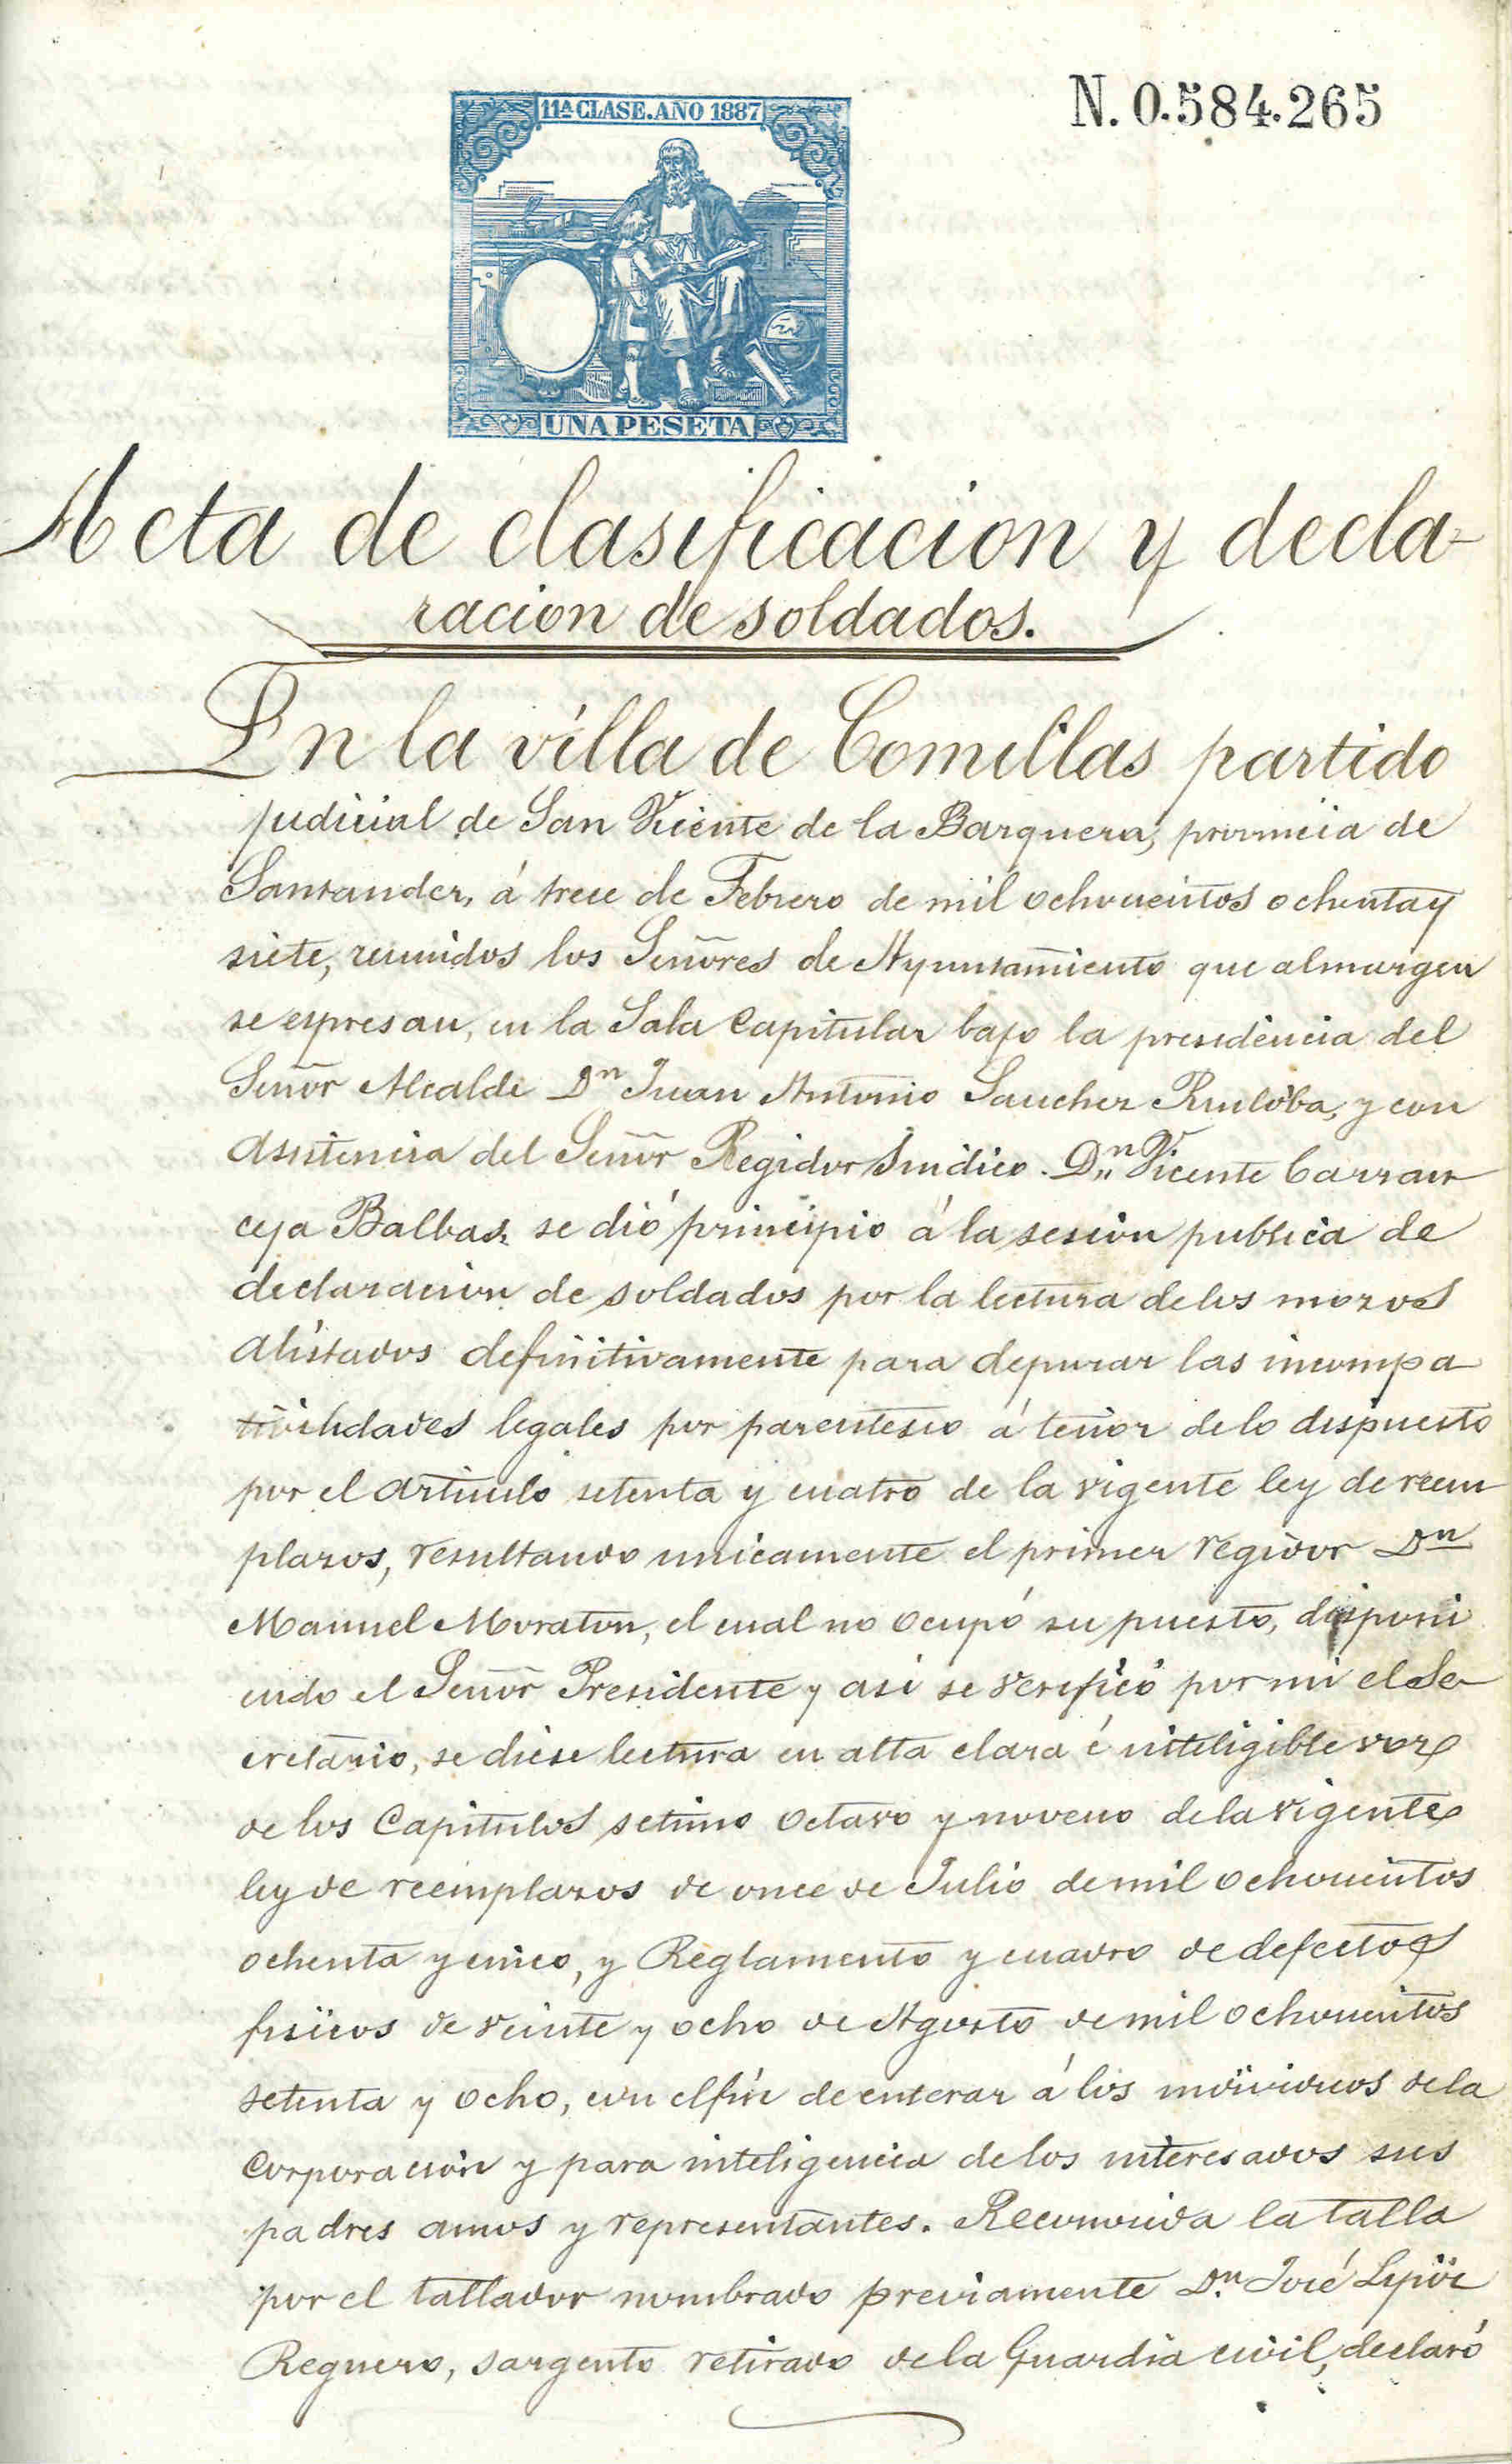 11ª CLASE. AÑO 1887
N. 0.584.265
UNA PESETA
Acta de clasificacion y decla-
racion de soldados.
En la villa de Comillas partido
judicial de San Vicente de la Barquera, provincia de
Santander, á trece de Febrero de mil ochocientos ochenta y
siete, reunidos los Señores de Ayuntamiento que al margen
se espresan, en la Sala Capitular bajo la presidencia del
Señor Alcalde Dn Juan Antonio Sanchez Ruiloba, y con
asistencia del Señor Regidor Sindico Dn Vicente Carran
ceja Balbas, se dió principio á la sesion publica de
declaracion de soldados por la lectura de los mozos
alistados definitivamente para depurar las incompa
tibilidades legales por parentesco á tenor de lo dispuesto
por el articulo setenta y cuatro de la vigente ley de reem
plazos, resultando unicamente el primer regidor Dn
Manuel Moraton, el cual no ocupó su puesto, disponi
endo el Señor Presidente y asi se verificó por mi el Se-
cretario, se diese lectura en alta clara é inteligible voz
de los Capitulos setimo octavo y noveno de la vigente
ley de reemplazos de once de Julio de mil ochocientos
ochenta y cinco, y Reglamento y cuadro de defectos
fisicos de veinte y ocho de Agosto de mil ochocientos
setenta y ocho, con el fin de enterar á los individuos de la
Corporacion y para inteligencia de los interesados sus
padres amos y representantes. Reconocida la talla
por el tallador nombrado previamente Dn José
Reguero, sargento retirado de la Guardia civil, declaró